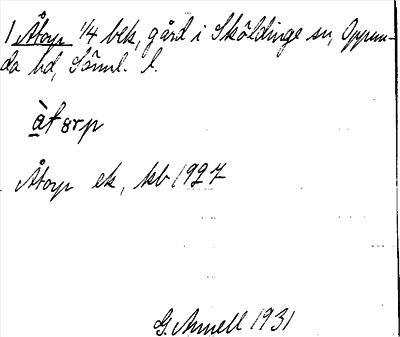 1 Åtorp 1/4 bek, gård i Sköldinge sn, Oppun-
da hd, Söml. l.
àtorp
Åtorp ek, kb 1927
G. Annell 1931